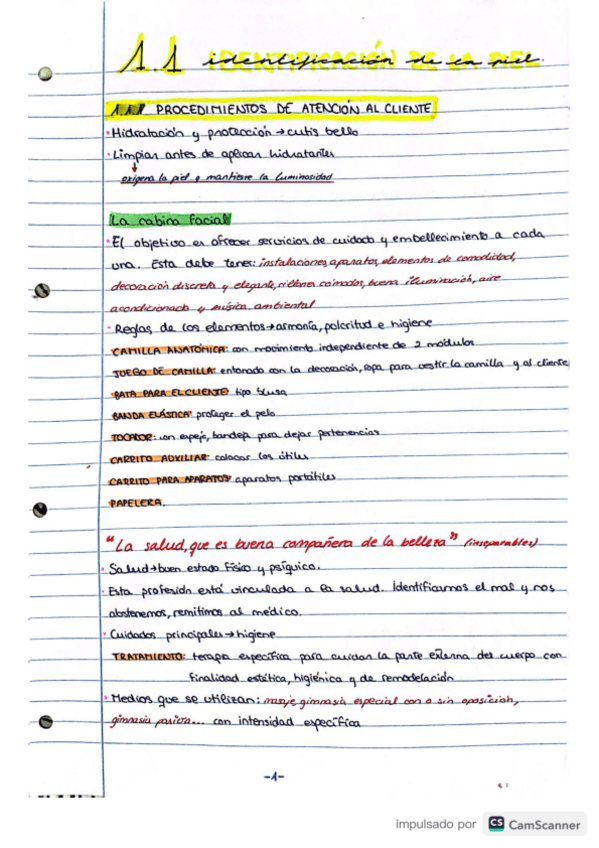 1.1 identificación de la piel.
1.1.1 PROCEDIMIENTOS DE ATENCIÓN AL CLIENTE
· Hidratación y protección → cutis bello
· Limpiar antes de aplicar hidratantes
oxigena la piel y mantiene la luminosidad
La cabina facial
· El objetivo es ofrecer servicios de cuidado y embellecimiento a cada
una. Esta debe tener: instalaciones, aparatos, elementos de comodidad,
decoración discreta y elegante, sillones cómodos, buena iluminación, aire
acondicionado y música ambiental
· Reglas de los elementos → armonía, polcritud e higiene
CAMILLA ANATÓMICA: con movimiento independiente de 2 módulos
JUEGO DE CAMILLA: entonado con la decoración, ropa para vestir la camilla y al cliente
BATA PARA EL CLIENTE: tipo blusa
BANDA ELÁSTICA: proteger el pelo
TOCADOR: con espejo, bandeja para dejar pertenencias
CARRITO AUXILIAR: colocar los útiles
CARRITO PARA APARATOS: aparatos portátiles
PAPELERA.
"La salud, que es buena compañera de la belleza" (inseparables)
· Salud → buen estado físico y psíquico.
· Esta profesión está vinculada a la salud. Identificamos el mal y nos
abstenemos, remitimos al médico.
· Cuidados principales → higiene
TRATAMIENTO: terapia específica para cuidar la parte externa del cuerpo con
finalidad estética, higiénica y de remodelación
· Medios que se utilizan: masaje, gimnasia especial con o sin oposición,
gimnasia pasiva... con intensidad específica
-1-
impulsado por CS CamScanner